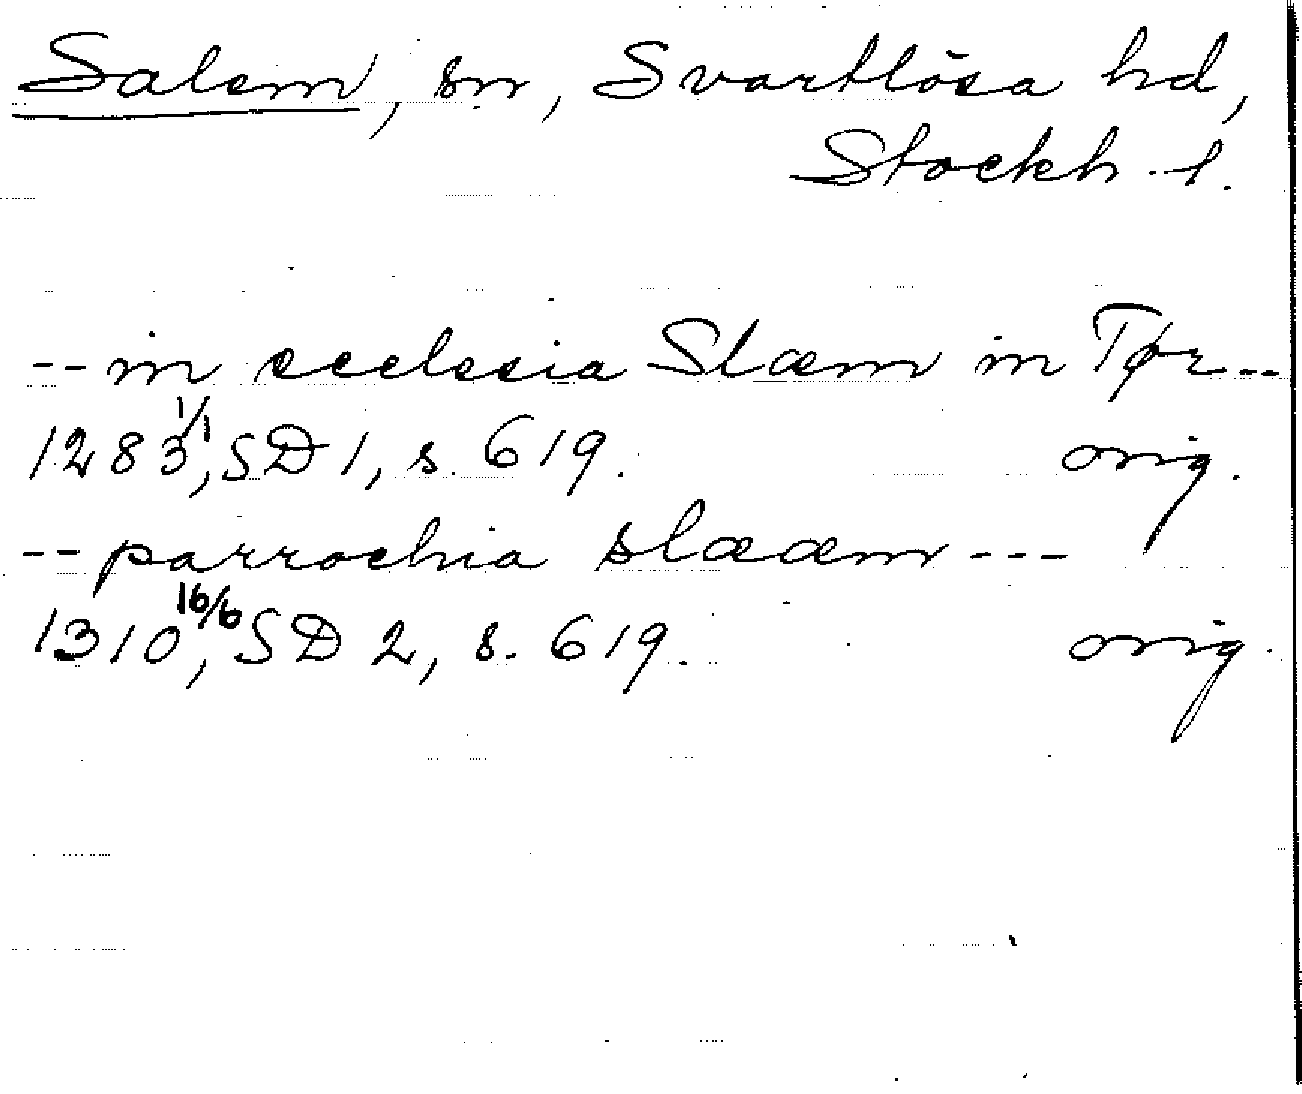 Salem, sn, Svartlösa hd,
Stockh. l.
-- in ecclesia Slæm in Tør --
1283 1/1, SD 1, s. 619. orig.
-- parrochia slææm ---
1310 16/6, SD 2, s. 619. orig.